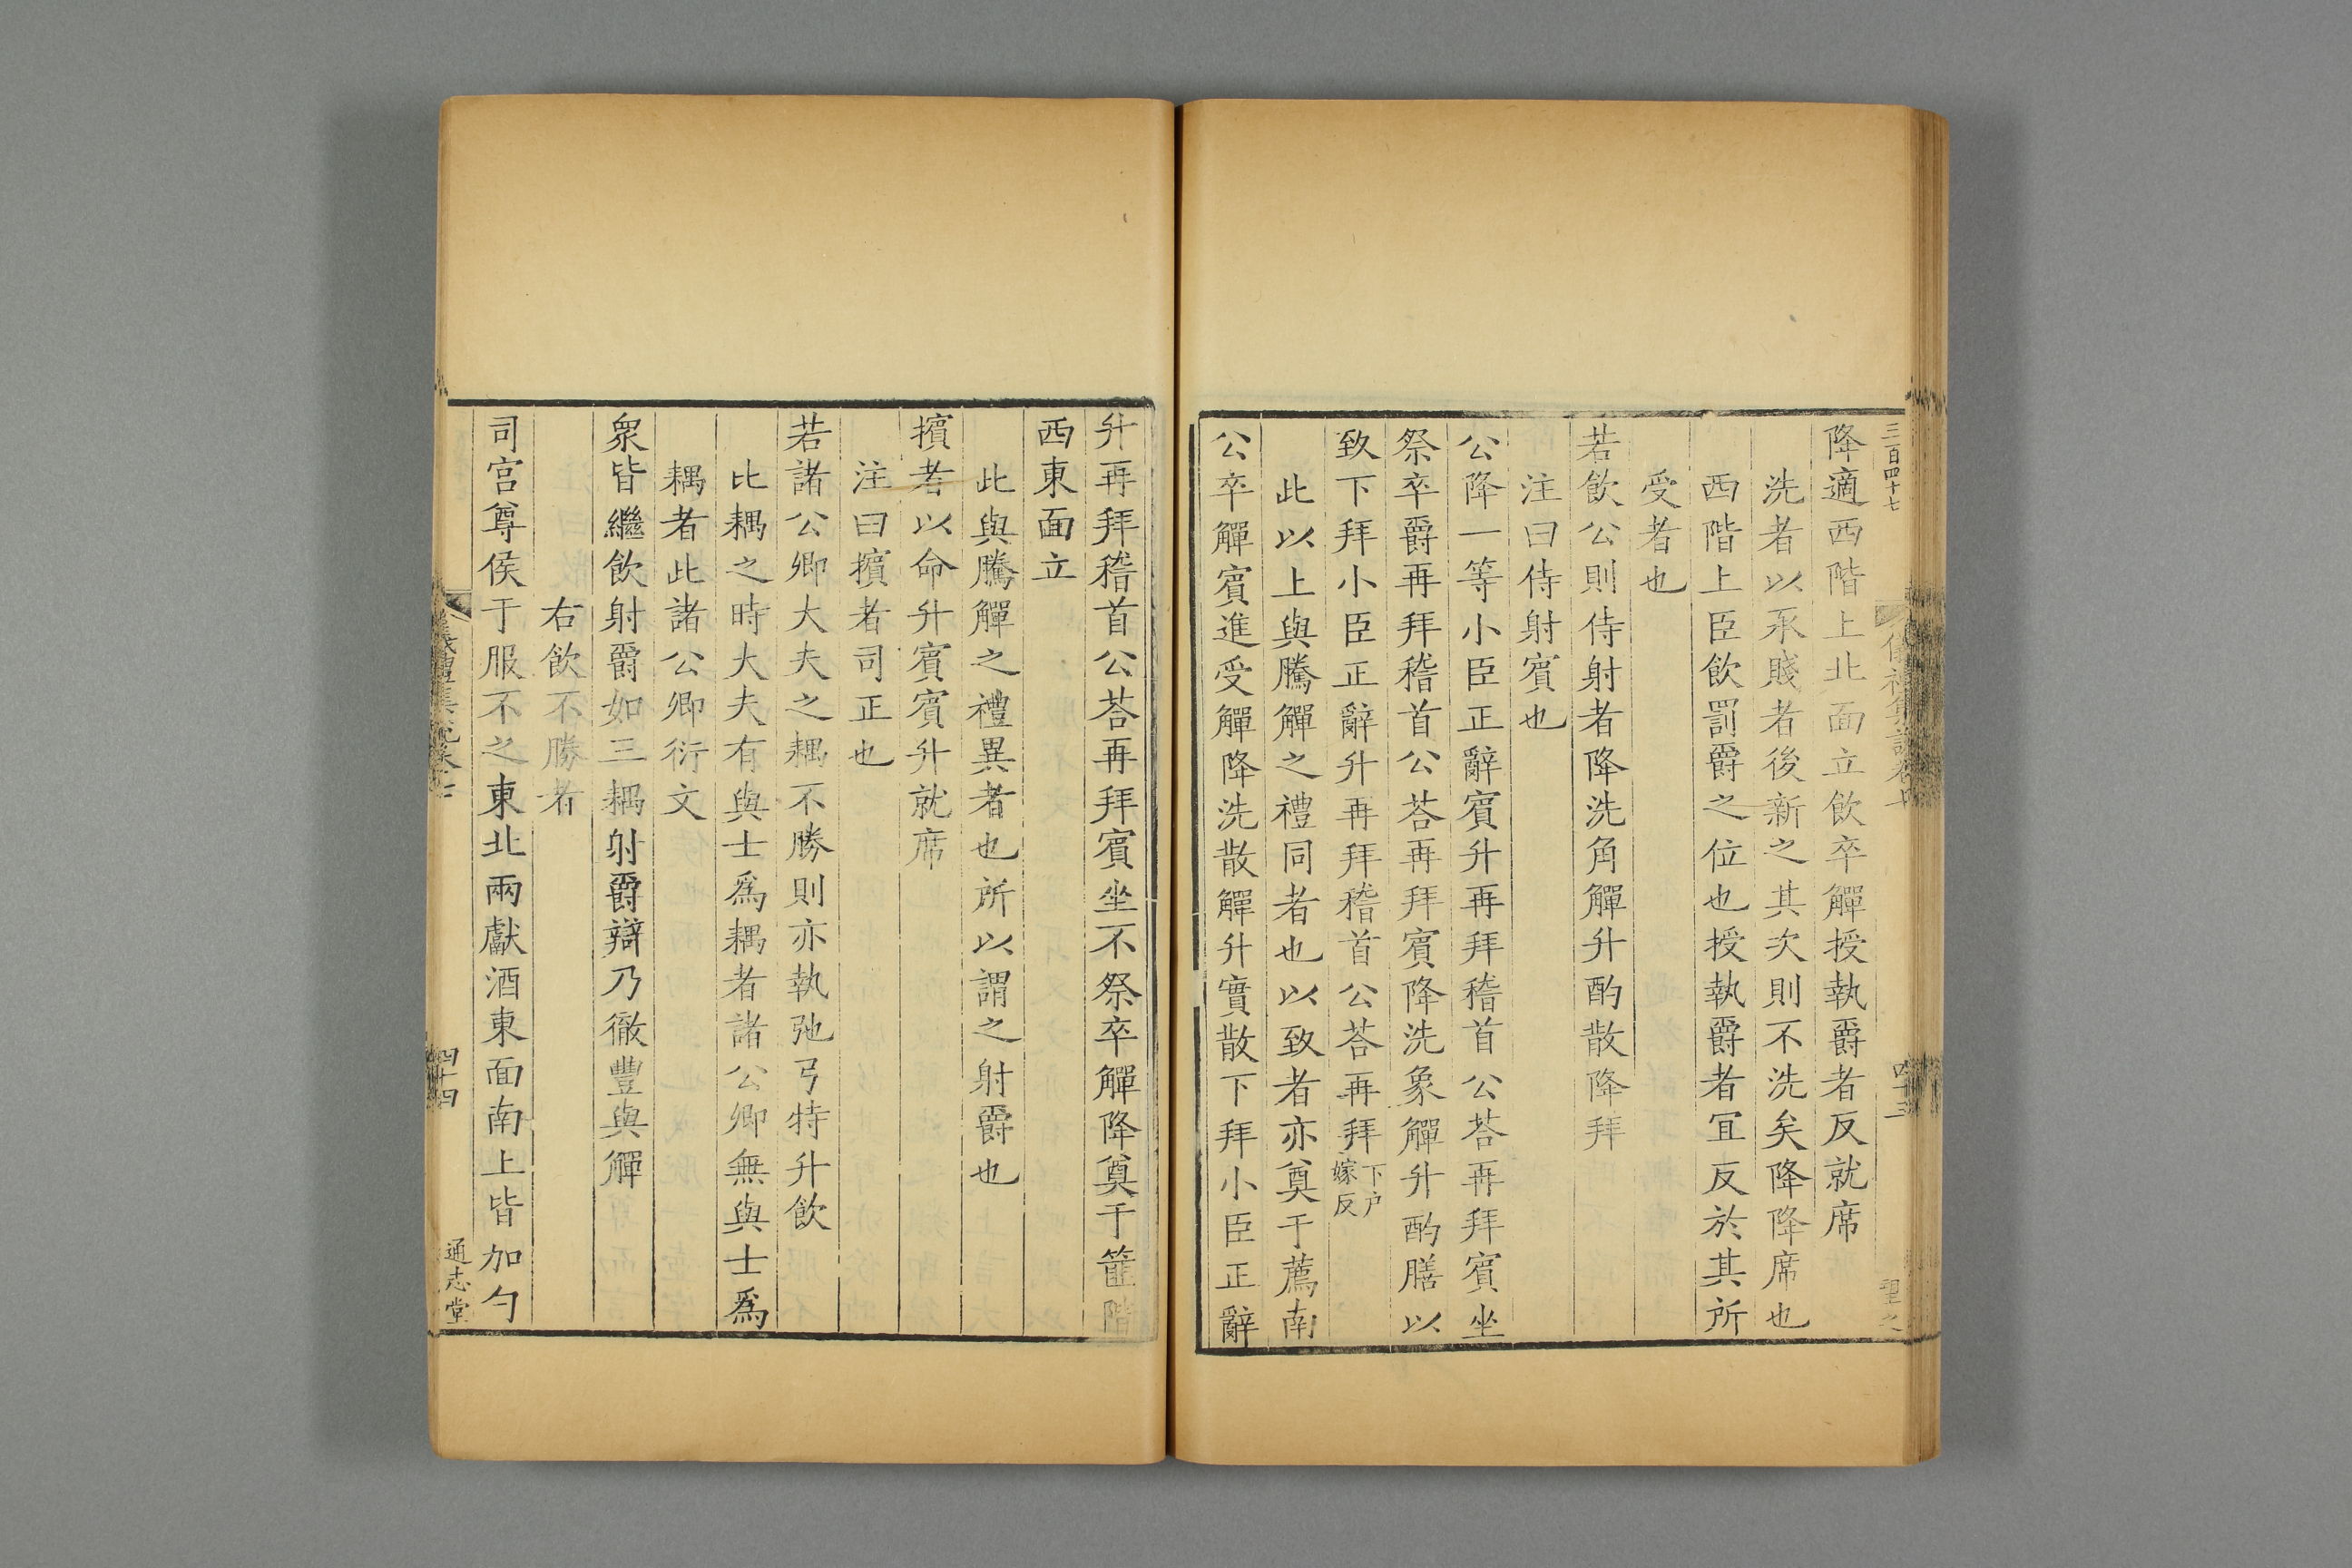 三百四十七
儀禮集說卷七
四十三
降適西階上北面立飲卒觶授執爵者反就席
洗者以承賤者後新之其次則不洗矣降降席也
西階上臣飲罰爵之位也授執爵者冝反於其所
受者也
若飲公則侍射者降洗角觶升酌散降拜
注曰侍射賓也
公降一等小臣正辭賓升再拜稽首公荅再拜賓坐
祭卒爵再拜稽首公荅再拜賓降洗象觶升酌膳以
致下拜小臣正辭升再拜稽首公荅再拜下户嫁反
此以上與騰觶之禮同者也以致者亦奠于薦南
公卒觶賓進受觶降洗散觶升實散下拜小臣正辭
升再拜稽首公荅再拜賓坐不祭卒觶降奠于篚階
西東面立
此與騰觶之禮異者也所以謂之射爵也
擯者以命升賓賓升就席
注曰擯者司正也
若諸公卿大夫之耦不勝則亦執弛弓特升飲
比耦之時大夫有與士爲耦者諸公卿無與士爲
耦者此諸公卿衍文
衆皆繼飲射爵如三耦射爵辯乃徹豐與觶
右飲不勝者
司宫尊侯于服不之東北兩獻酒東面南上皆加勺
四十四
通志堂